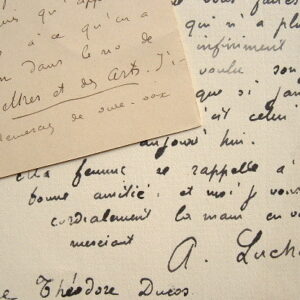 à ce qu'en a
dans le no de
ettres et des arts. J'i
vous faire
qui n'a p
infiniment
voulu son
que si jam
celui
aujourd'hui.
femme se rappelle à
bonne amitié, et moi je vous
cordialement la main en vo
merciant
A. Luch
Théodore Ducos